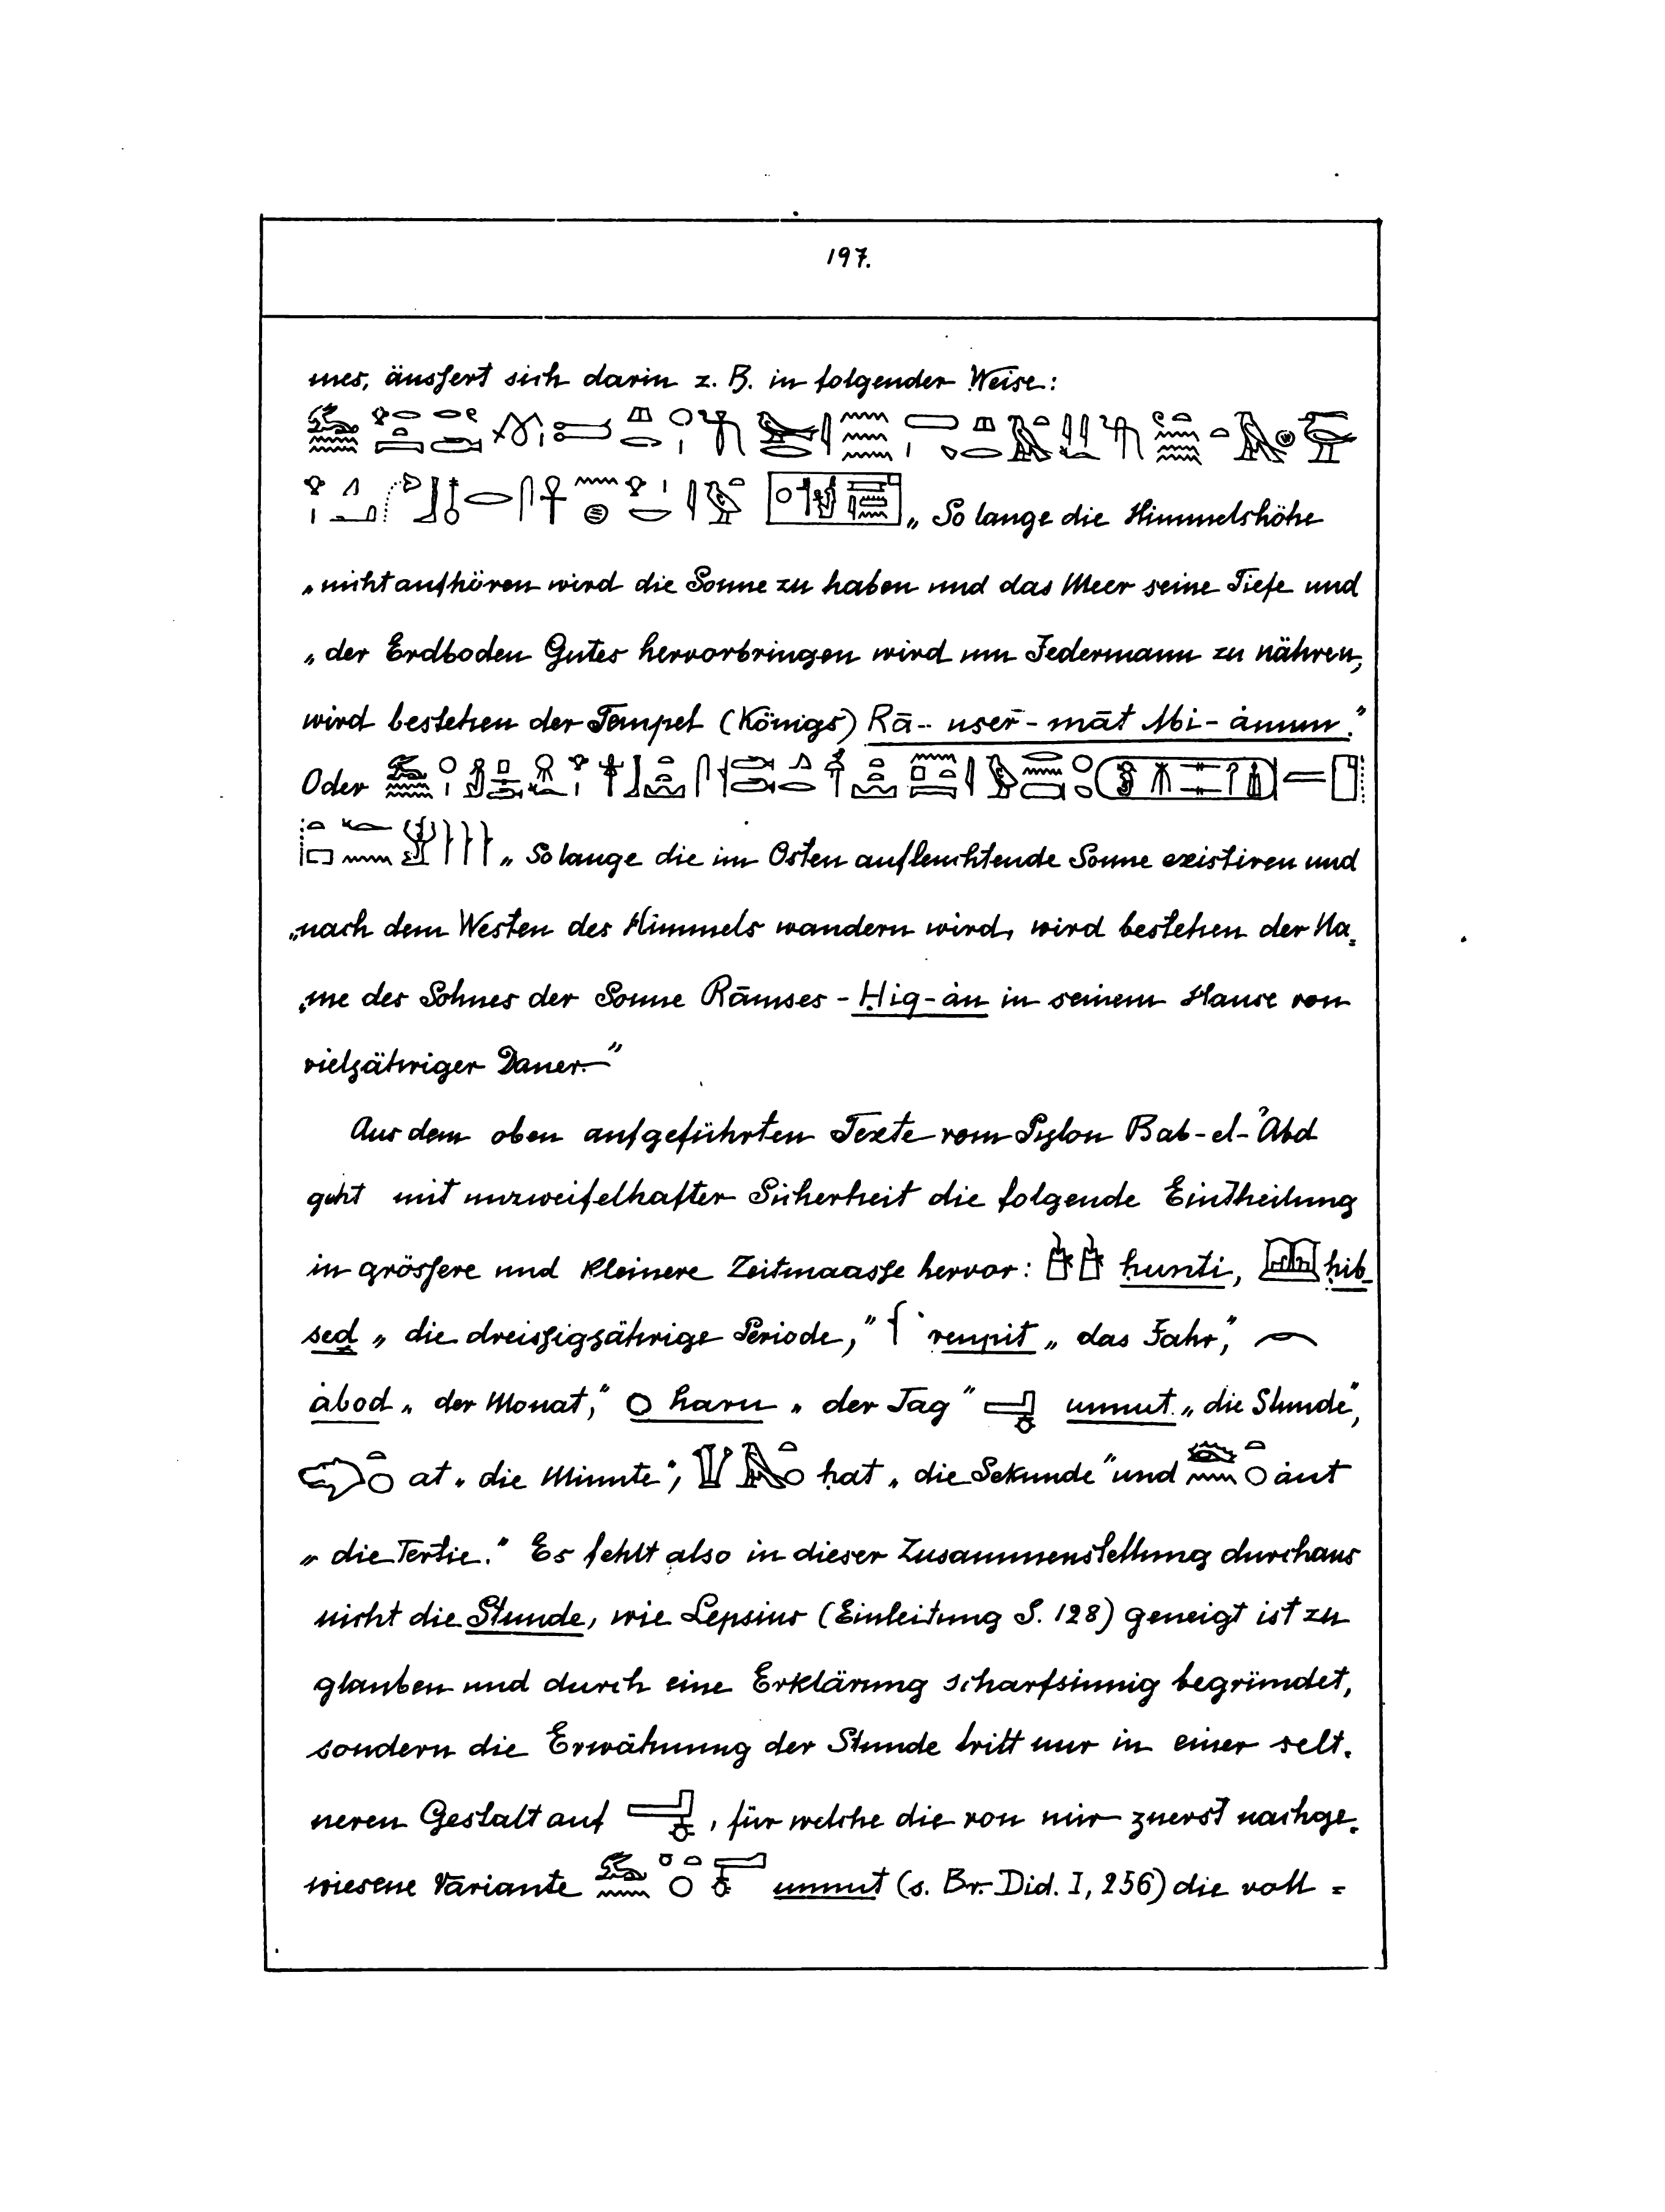 197.
mes, äussert sich darin z. B. in folgender Weise:
„ So lange die Himmelshöhe
„nicht aufhören wird die Sonne zu haben und das Meer seine Tiefe und
„der Erdboden Gutes hervorbringen wird um Jedermann zu nähren,
wird bestehen der Tempel (Königs) Rā- user-māt Mi-ȧmun."
Oder
„ So lange die im Osten aufleuchtende Sonne existiren und
„nach dem Westen des Himmels wandern wird, wird bestehen der Na=
„me des Sohnes der Sonne Rāmses - Ḥiq-ȧn in seinem Hause von
vieljähriger Dauer."
Aus dem oben aufgeführten Texte vom Pylon Bab-el-'Abd
geht mit unzweifelhafter Sicherheit die folgende Eintheilung
in grössere und kleinere Zeitmaasse hervor: ḥunti, ḥib-
sed „ die dreissigjährige Periode," renpit „ das Jahr,"
ȧbod „ der Monat," haru „ der Tag" unnut „ die Stunde",
at „ die Minute", ḥat „ die Sekunde" und ȧnt
„ die Tertie." Es fehlt also in dieser Zusammenstellung durchaus
nicht die Stunde, wie Lepsius (Einleitung S. 128) geneigt ist zu
glauben und durch eine Erklärung scharfsinnig begründet,
sondern die Erwähnung der Stunde tritt nur in einer selt=
neren Gestalt auf , für welche die von mir zuerst nachge=
wiesene Variante unnut (s. Br. Did. I, 256) die voll =